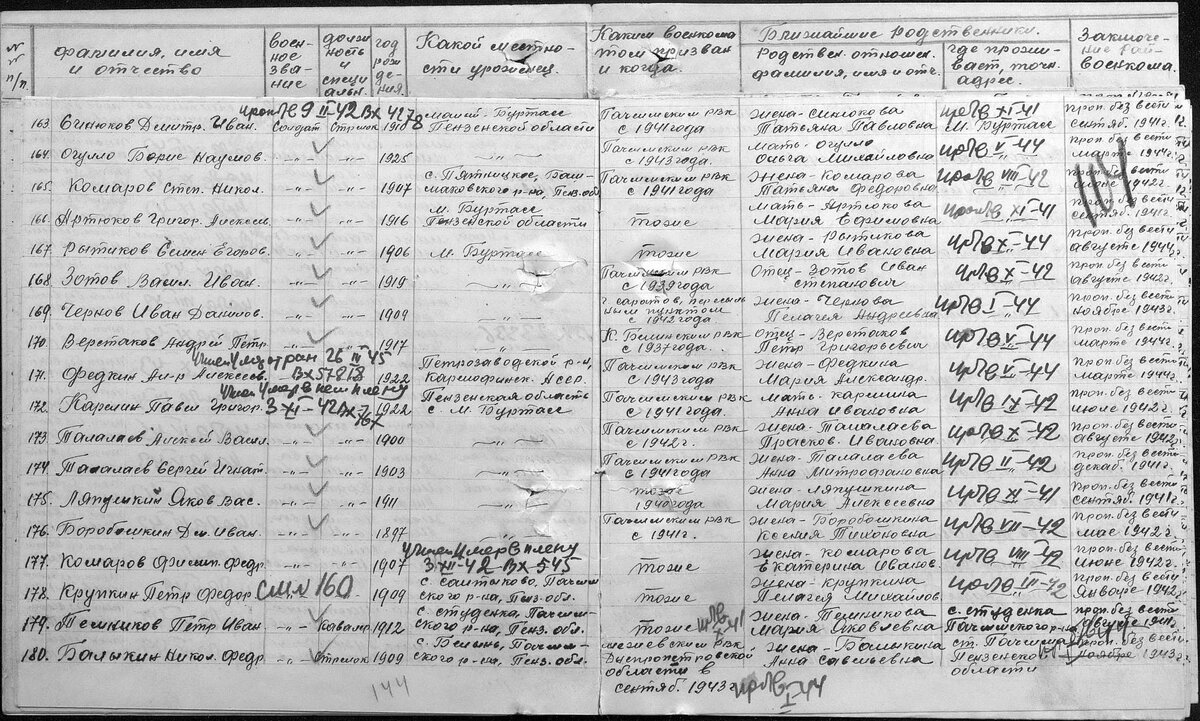 №№ п/п. фамилия, имя и отчество воен- ное зва- ние долж ность и специ альн. год рож де- ния. Какой местно- сти уроженец. Каким военкома том призван и когда. Ближайшие родственники. Родствен. отношен. фамилия, имя и отч. где прожи- вает, точн. адрес. Заключе- ние рай- военкома.
9 II-42 Вх 4278
163. Синюков Дмитр. Иван. Солдат Стрелок 1910 Малый. Буртасс Пензенской области Пачелмским РВК с 1941 года жена-Синюкова Татьяна Павловна XI-41 М. Буртасс проп. без вести сентяб. 1941г.
164. Огулло Борис Наумов. -"- -"- 1925 -"- Пачелмским РВК с 1943 года. мать-Огулло Ольга Михайловна V-44 проп. без вести марте 1944г.
165. Комаров Степ. Никол. -"- -"- 1907 с. Пятницкое, Баш- маковского р-на, Пенз. обл. Пачелмским РВК с 1941 года жена-Комарова Татьяна Федоровна VIII-42 проп. без вести июне 1942г.
166. Артюков Григор. Алексеев. -"- -"- 1916 м. Буртасс Пензенской области тоже мать-Артюкова Мария Ефимовна XI-41 проп. без вести сентяб. 1941г.
167. Рытиков Семен Егоров. -"- -"- 1906 м. Буртасс тоже жена-Рытикова Мария Ивановна X-44 проп. без вести августе 1944г.
168. Зотов Васил. Иван. -"- -"- 1919 -"- Пачелмским РВК с 1939 года Отец-Зотов Иван степанович X-42 проп. без вести августе 1942г.
169. Чернов Иван Данилов. -"- -"- 1909 -"- г. саратов, пересыль ным пунктом с 1942 года жена-Чернова Пелагея Андреевна I-44 проп. без вести ноябре 1943г.
170. Веретаков Андрей Петр -"- -"- 1917 -"- К. Белинским РВК с 1937 года. Отец-Веретаков Петр Григорьевич V-44 проп. без вести марте 1944г.
26 III 45 Вх 57818
171. Федкин Ал-р Алексеев. 1922 Петрозаводской р-н, Пачелмским РВК с 1943 года жена-Федкина Мария Александр. V-44 проп. без вести марте 1944г.
Учтен Умер в нем. плену 3-XI-42
172. Карлин Павел Григор. 1922 Пензенская область с. М. Буртасс Пачелмским РВК с 1941 года. мать-Карлина Анна Ивановна IX-42 проп. без вести июле 1942г.
173. Талалаев Алексей Васил. -"- -"- 1900 -"- Пачелмским РВК с 1942г. жена-Талалаева Прасков. Ивановна X-42 проп. без вести августе 1942г.
174. Талалаев Сергей Игнат. -"- -"- 1903 -"- Пачелмским РВК с 1941 года жена-Талалаева Анна Митрофановна II-42 проп. без вести декаб. 1941г.
175. Ляпушкин Яков Вас. -"- -"- 1911 -"- тоже 1940 года жена-Ляпушкина Мария Алексеевна XI-41 проп. без вести сентяб. 1941г.
176. Боробошкин Дм. Иван. -"- -"- 1897 -"- Пачелмским РВК с 1941г. жена-Боробошкина Ксения Тихоновна VII-42 проп. без вести мае 1942г.
Учтен Умер в плену 3-XII-42-Вх-545
177. Комаров Филип. Федр. -"- -"- 1907 тоже жена-Комарова Екатерина Иванов VIII-42 проп. без вести июне 1942г.
178. Крупкин Петр Федор см. № 160 1909 с. салтыково, Пачелм ского р-на, Пенз. обл. тоже жена-Крупкина Пелагея Михайлов III-42 проп. без вести Январе 1942г.
179. Темников Петр Иван -"- Кавалер. 1912 с. студенка, Пачелм- ского р-на, Пенз. обл. тоже жена-Темникова Мария Яковлевна с. студенка Пачелмского р-на проп. без вести августе 1941г.
180. Балыкин Никол. Федр. -"- Стрелок 1909 Пачелм- ского р-на, Пенз. обл. Днепропетровской области в сентяб. 1943г. I-44 жена-Балыкина Анна Савельевна ст. Пачелма Пензенской области проп. без вести ноябре 1943г.
144